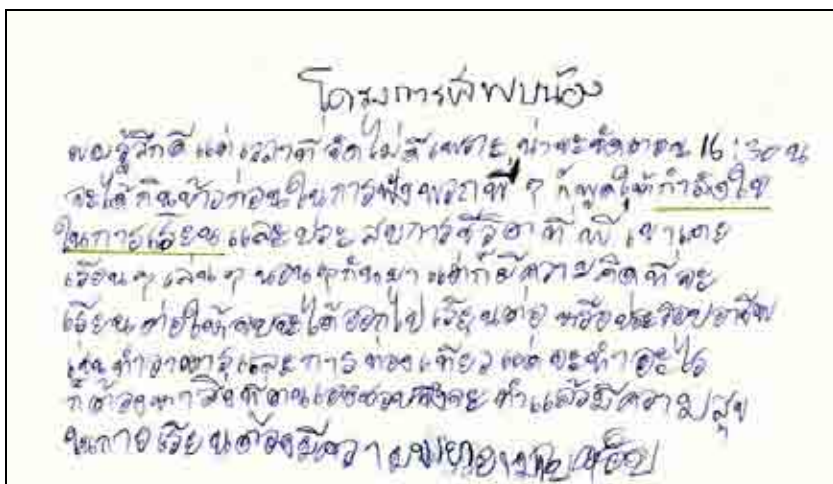 โครงการพี่พบน้อง
ผมรู้สึกดี แต่เวลาที่จัดไม่ดีเพราะ น่าจะจัดตอน 16:30 น
จะได้กินข้าวก่อนในการฟังพวกพี่ ๆ ก็พูดให้กำลังใจ
ในการเรียน และประสบการชีวิตที่พี่เขาเคย
เรียน ๆ เล่น ๆ นอน ๆ กันมา แต่ก็มีความคิดที่จะ
เรียนต่อให้จบจะได้ออกไปเรียนต่อ หรือประกอบอาชีพ
เช่นทำอาหารและการท่องเที่ยว แต่จะทำอะไร
ก็ต้องหาสิ่งที่ตนเองชอบถึงจะทำแล้วมีความสุข
ในการเรียนต้องมีความพยายาม